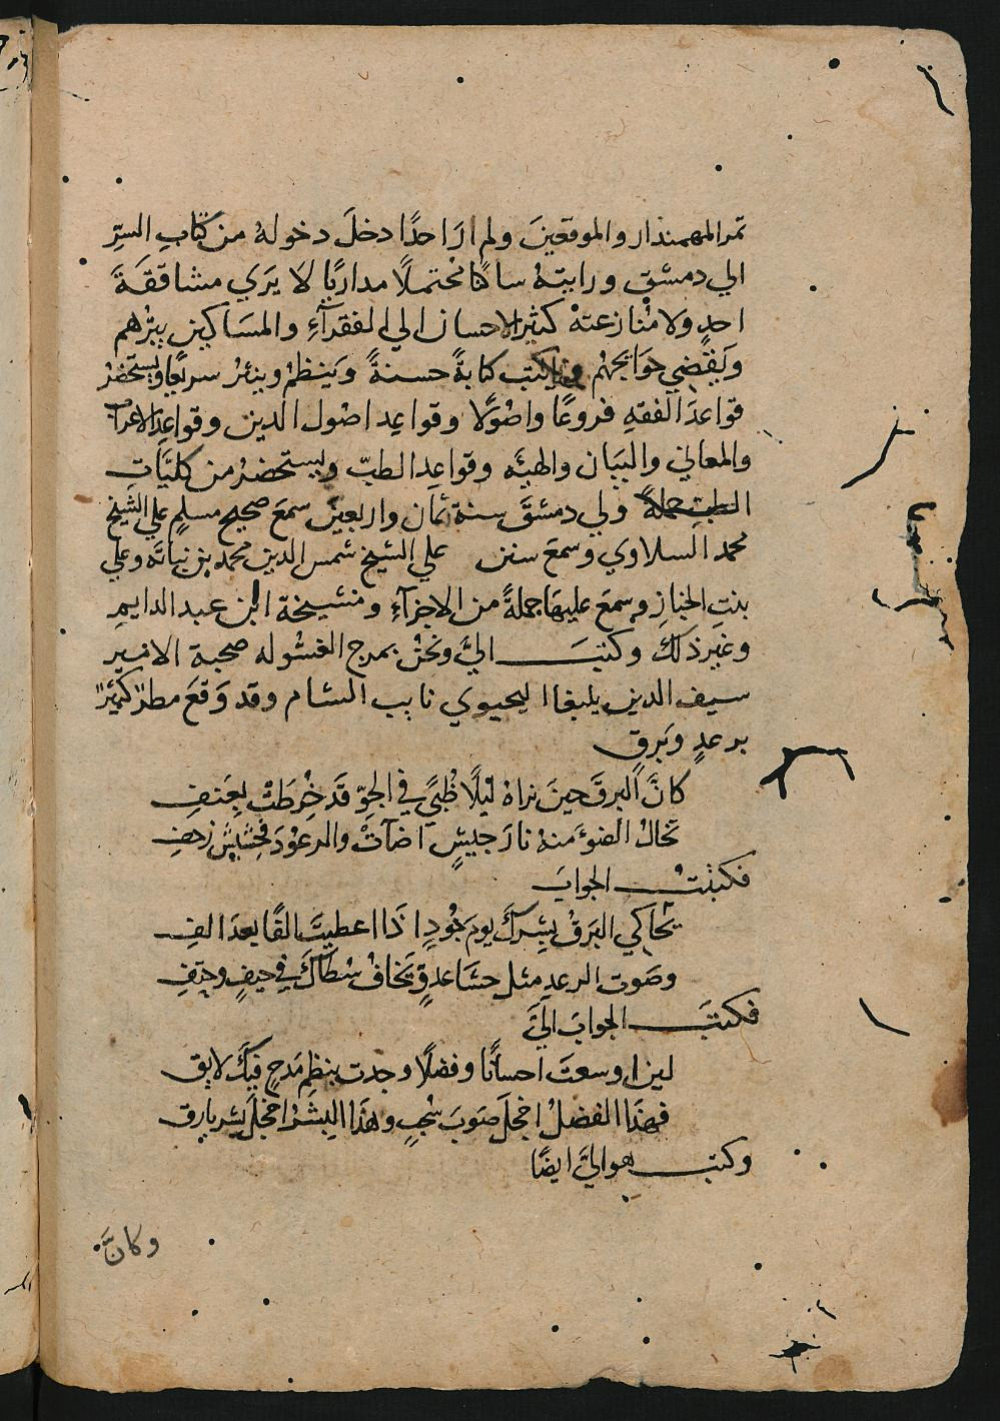 تمر المهمندار والموقعينَ ولم ارَ احدًا دخلَ دخولهُ من كتابِ السِّرِ
الي دمشق ورايتهُ ساكنًا محتملًا مداريًا لا يَرَي مشاققَةَ
احدٍ ولا مُنازعتهُ كثير الاحسان الي الفقرآءِ والمسَاكين يبَرُّهم
ويَقضي حوَايجهُم ويكتب كتابةً حسنةً ويَنظمُ وينثرُ سريعًا ويستحضرُ
قواعدَ الفقهِ فروعًا واصُولًا وقواعِد اصُول الدين وقواعِد الاعراب
والمعاني والبيَان والهيئه وقواعدِ الطبّ ويستحضرُ من كليَّاتِ
الطب جملةً ولي دمشقَ سنة ثمان واربعينَ سمعَ صحيح مسلمٍ علي الشيخ
محمد السلاوي وسمعَ سنن علي الشيخ شمس الدين محمد بن نباتَه وعلي
بنتِ الخبازِ وسمعَ عليهَا جملةً من الاجزآءِ ومشيخة ابن عبد الدايم
وغيرَ ذلكَ وكتبَ اليَّ ونحنُ بمرج الغسُوله صحبة الامير
سيف الدين يلبغا اليحيوي نايب الشام وقد وَقعَ مطرٌ كثيرٌ
برعدٍ وبَرقٍ
كانَّ البرقَ حينَ نراهُ ليْلًا ظُبيً في الجوِّ قدَ خُرطَتْ بِعَنفِ
تخالُ الضوءَ منهُ نارَ جيشٍ اضآتْ والرعوْدَ فجيش زحفِ
فكتبتُ الجوابَ
يُحاكي البَرقُ بِشركَ يومَ جُودٍ اذَا اعطيتَ الفًا بعدَ الفِ
وصَوت الرعدِ مثل حشَا عدوٍّ يَخافُ سُطاكَ في حيفٍ وحتفِ
فكتبَ الجوابَ اليَّ
لين اوسعتَ احسانًا وفضلًا وجدت بنظمِ مَدحٍ فيكَ لايق
فهذَا الفضلُ اخجلَ صَوبَ سُحبٍ وهذَا البِشرُ اخجلَ بشر بارق
وكتب هو اليَّ ايضًا
وكانَّ